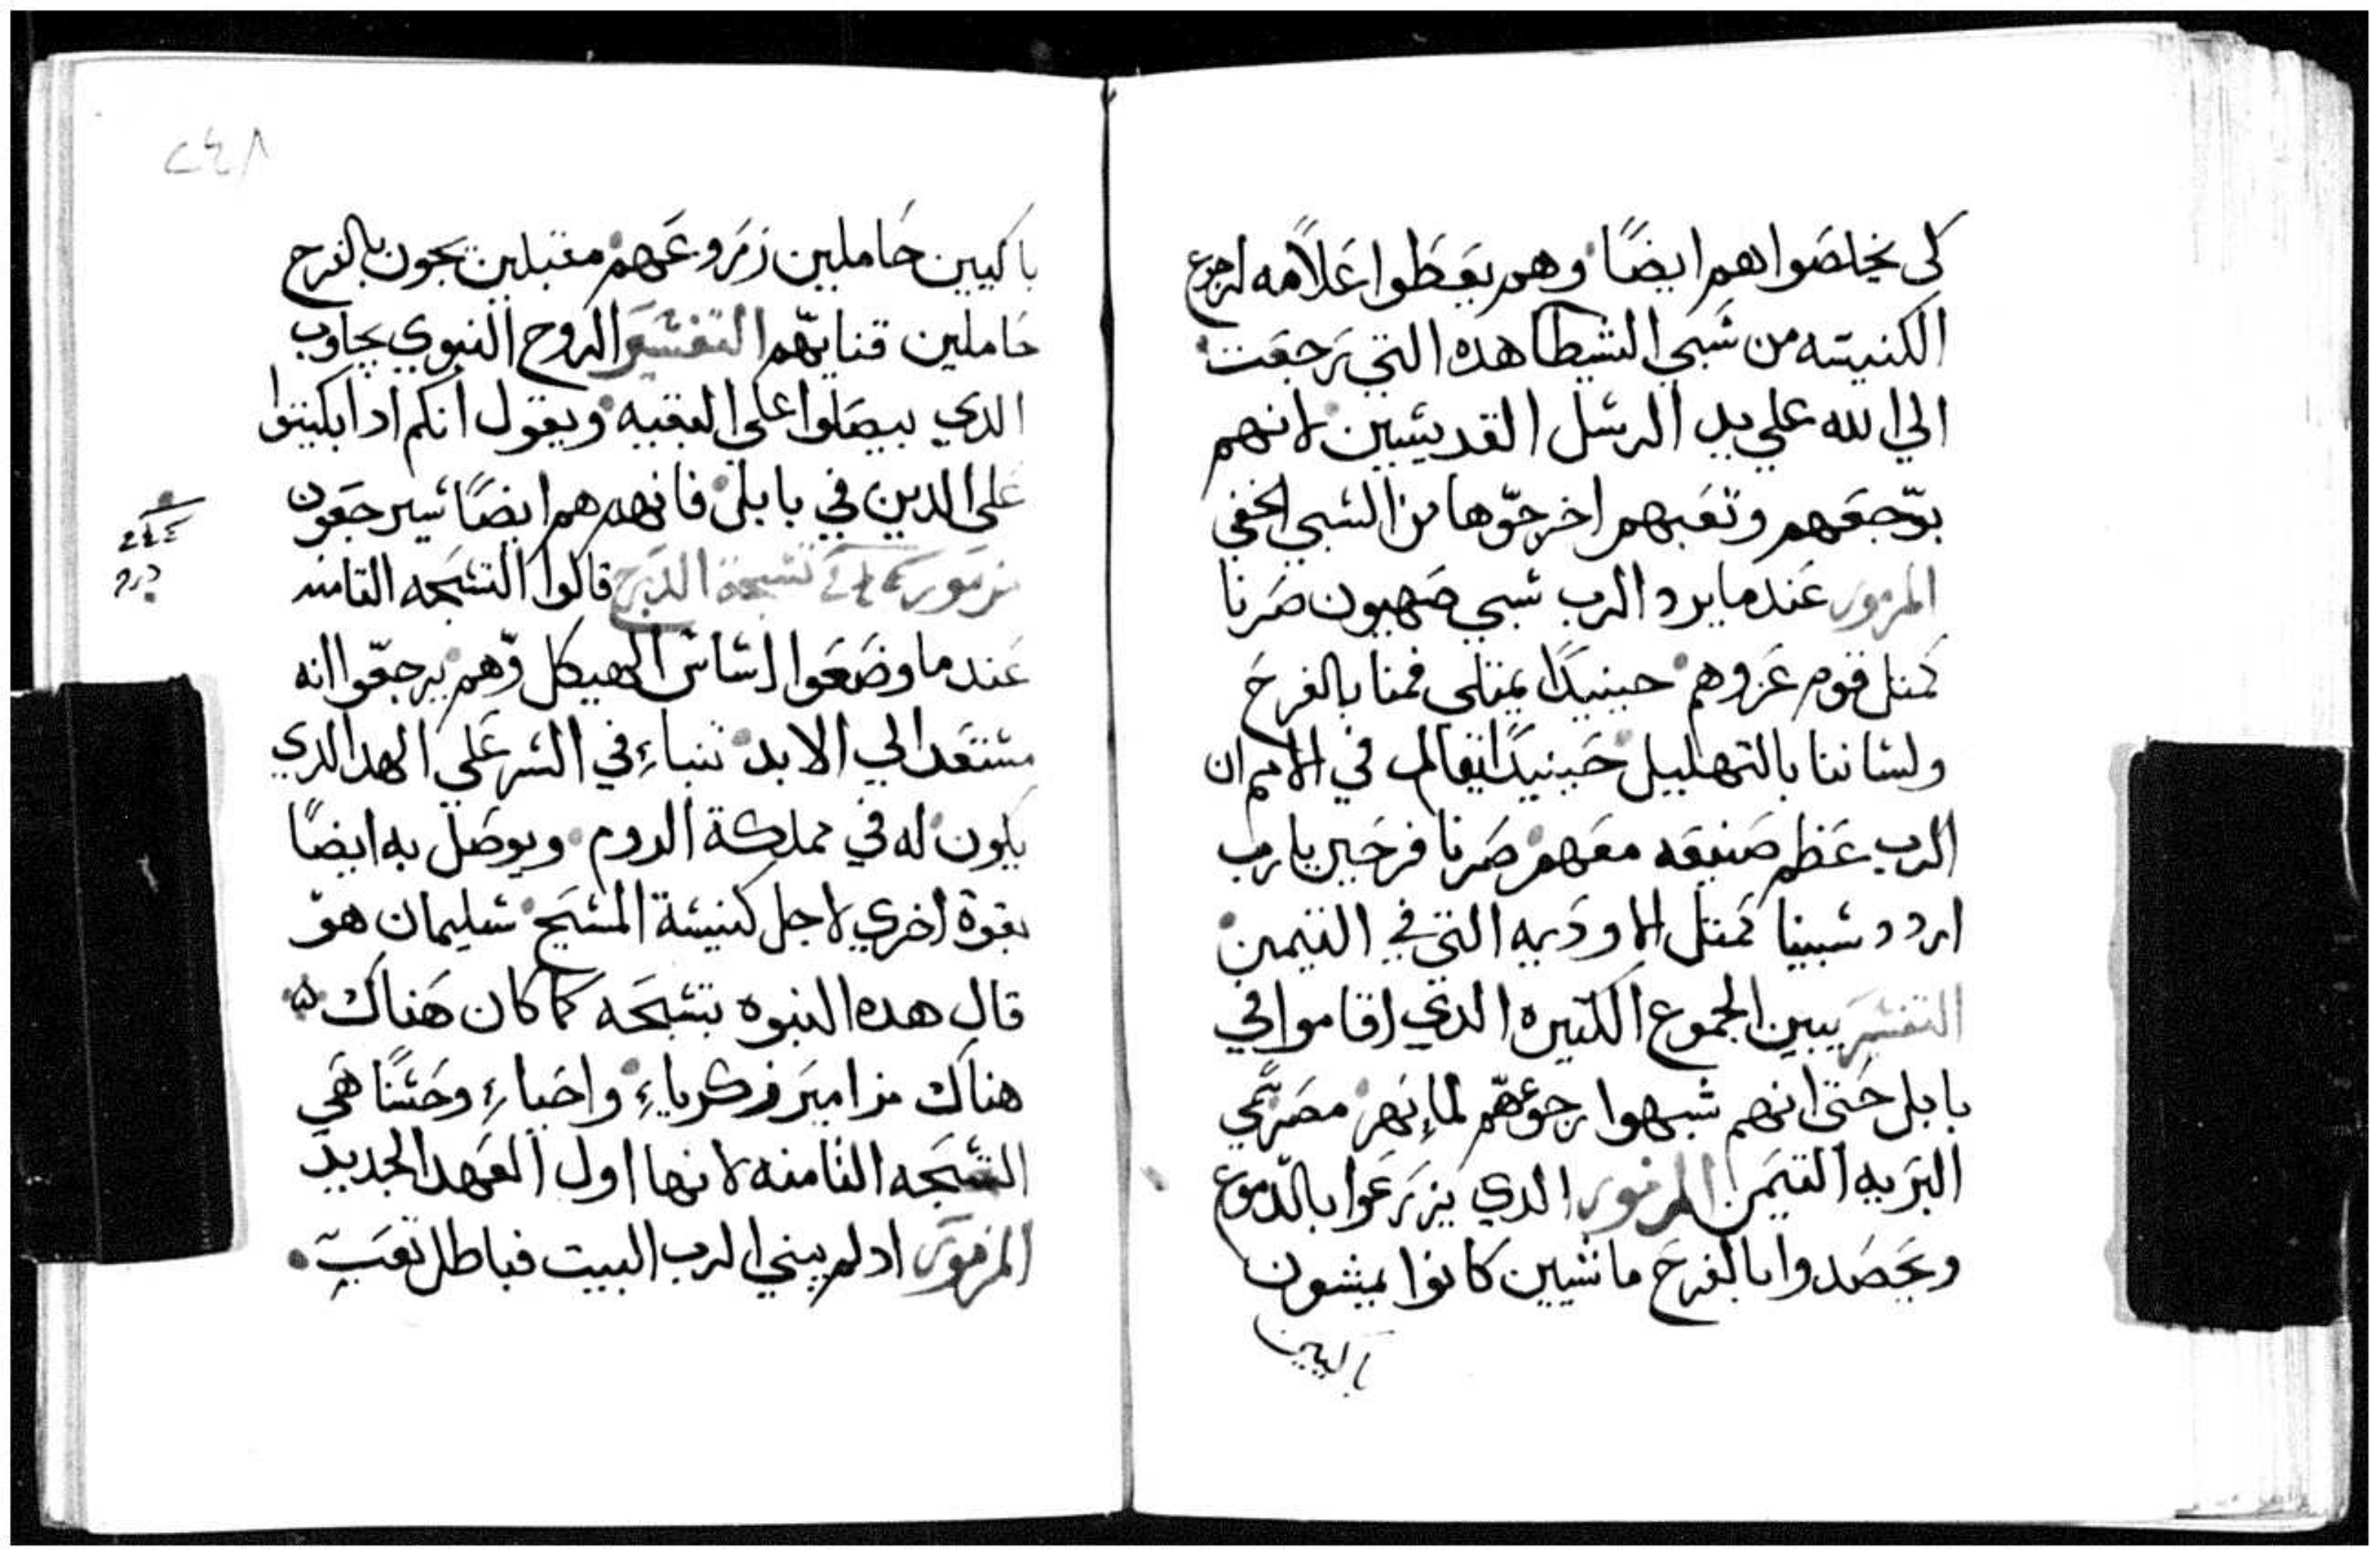 كى يخلصوا هم ايضًا وهم يعطوا علامه لرجوع
الكنيسه من سبي الشيطا هده التي رجعت
الي الله علي يد الرسل القديسين لانهم
بوجعهم وتعبهم اخرجوها من السبي الخفي
المزمور عندما يرد الرب سبي صهيون صرنا
كمتل قوم عزوهم حينيدًا يمتلى فمنا بالفرح
ولساننا بالتهليل حينيدًا يقال في الامم ان
الرب عظم صنيعه معهم صرنا فرحين يا رب
اردد سبينا كمتل الاوديه التي في التيمن
التفسير يبين الجموع الكتيره الدي اقاموا في
بابل حتى انهم شبهوا رجوعهم لماء نهر مصر في
البريه التيمن المزمور الدي يزرعوا بالدموع
ويحصدوا بالفرح ماشيين كانوا يمشون
باكيين
٢٤٨
باكيين حاملين زروعهم مقبلين يجون بالفرح
حاملين قنايهم التفسير الروح النبوي يجاوب
الدي بيصلوا علي البقيه ويقول انكم ادا بكيتوا
علي الدين في بابل فانهم هم ايضًا سيرجعون
مزمور تسبحة الدرج قالوا التسبحه التامنه
عندما وضعوا اساس الهيكل وهم يرجعوا انه
مستعد الي الابد تنباء في السر علي الهد الدي
يكون له في مملكة الروم ويوصل به ايضًا
بقوة اخري لاجل كنيسة المسيح سليمان هو
قال هده النبوه بتسبحه كما كان هناك
هناك مزامير زكرياء واحباء وحسنًا هي
التسبحه التامنه لانها اول العهد الجديد
المزمور اد لم يبني الرب البيت فباطل تعب